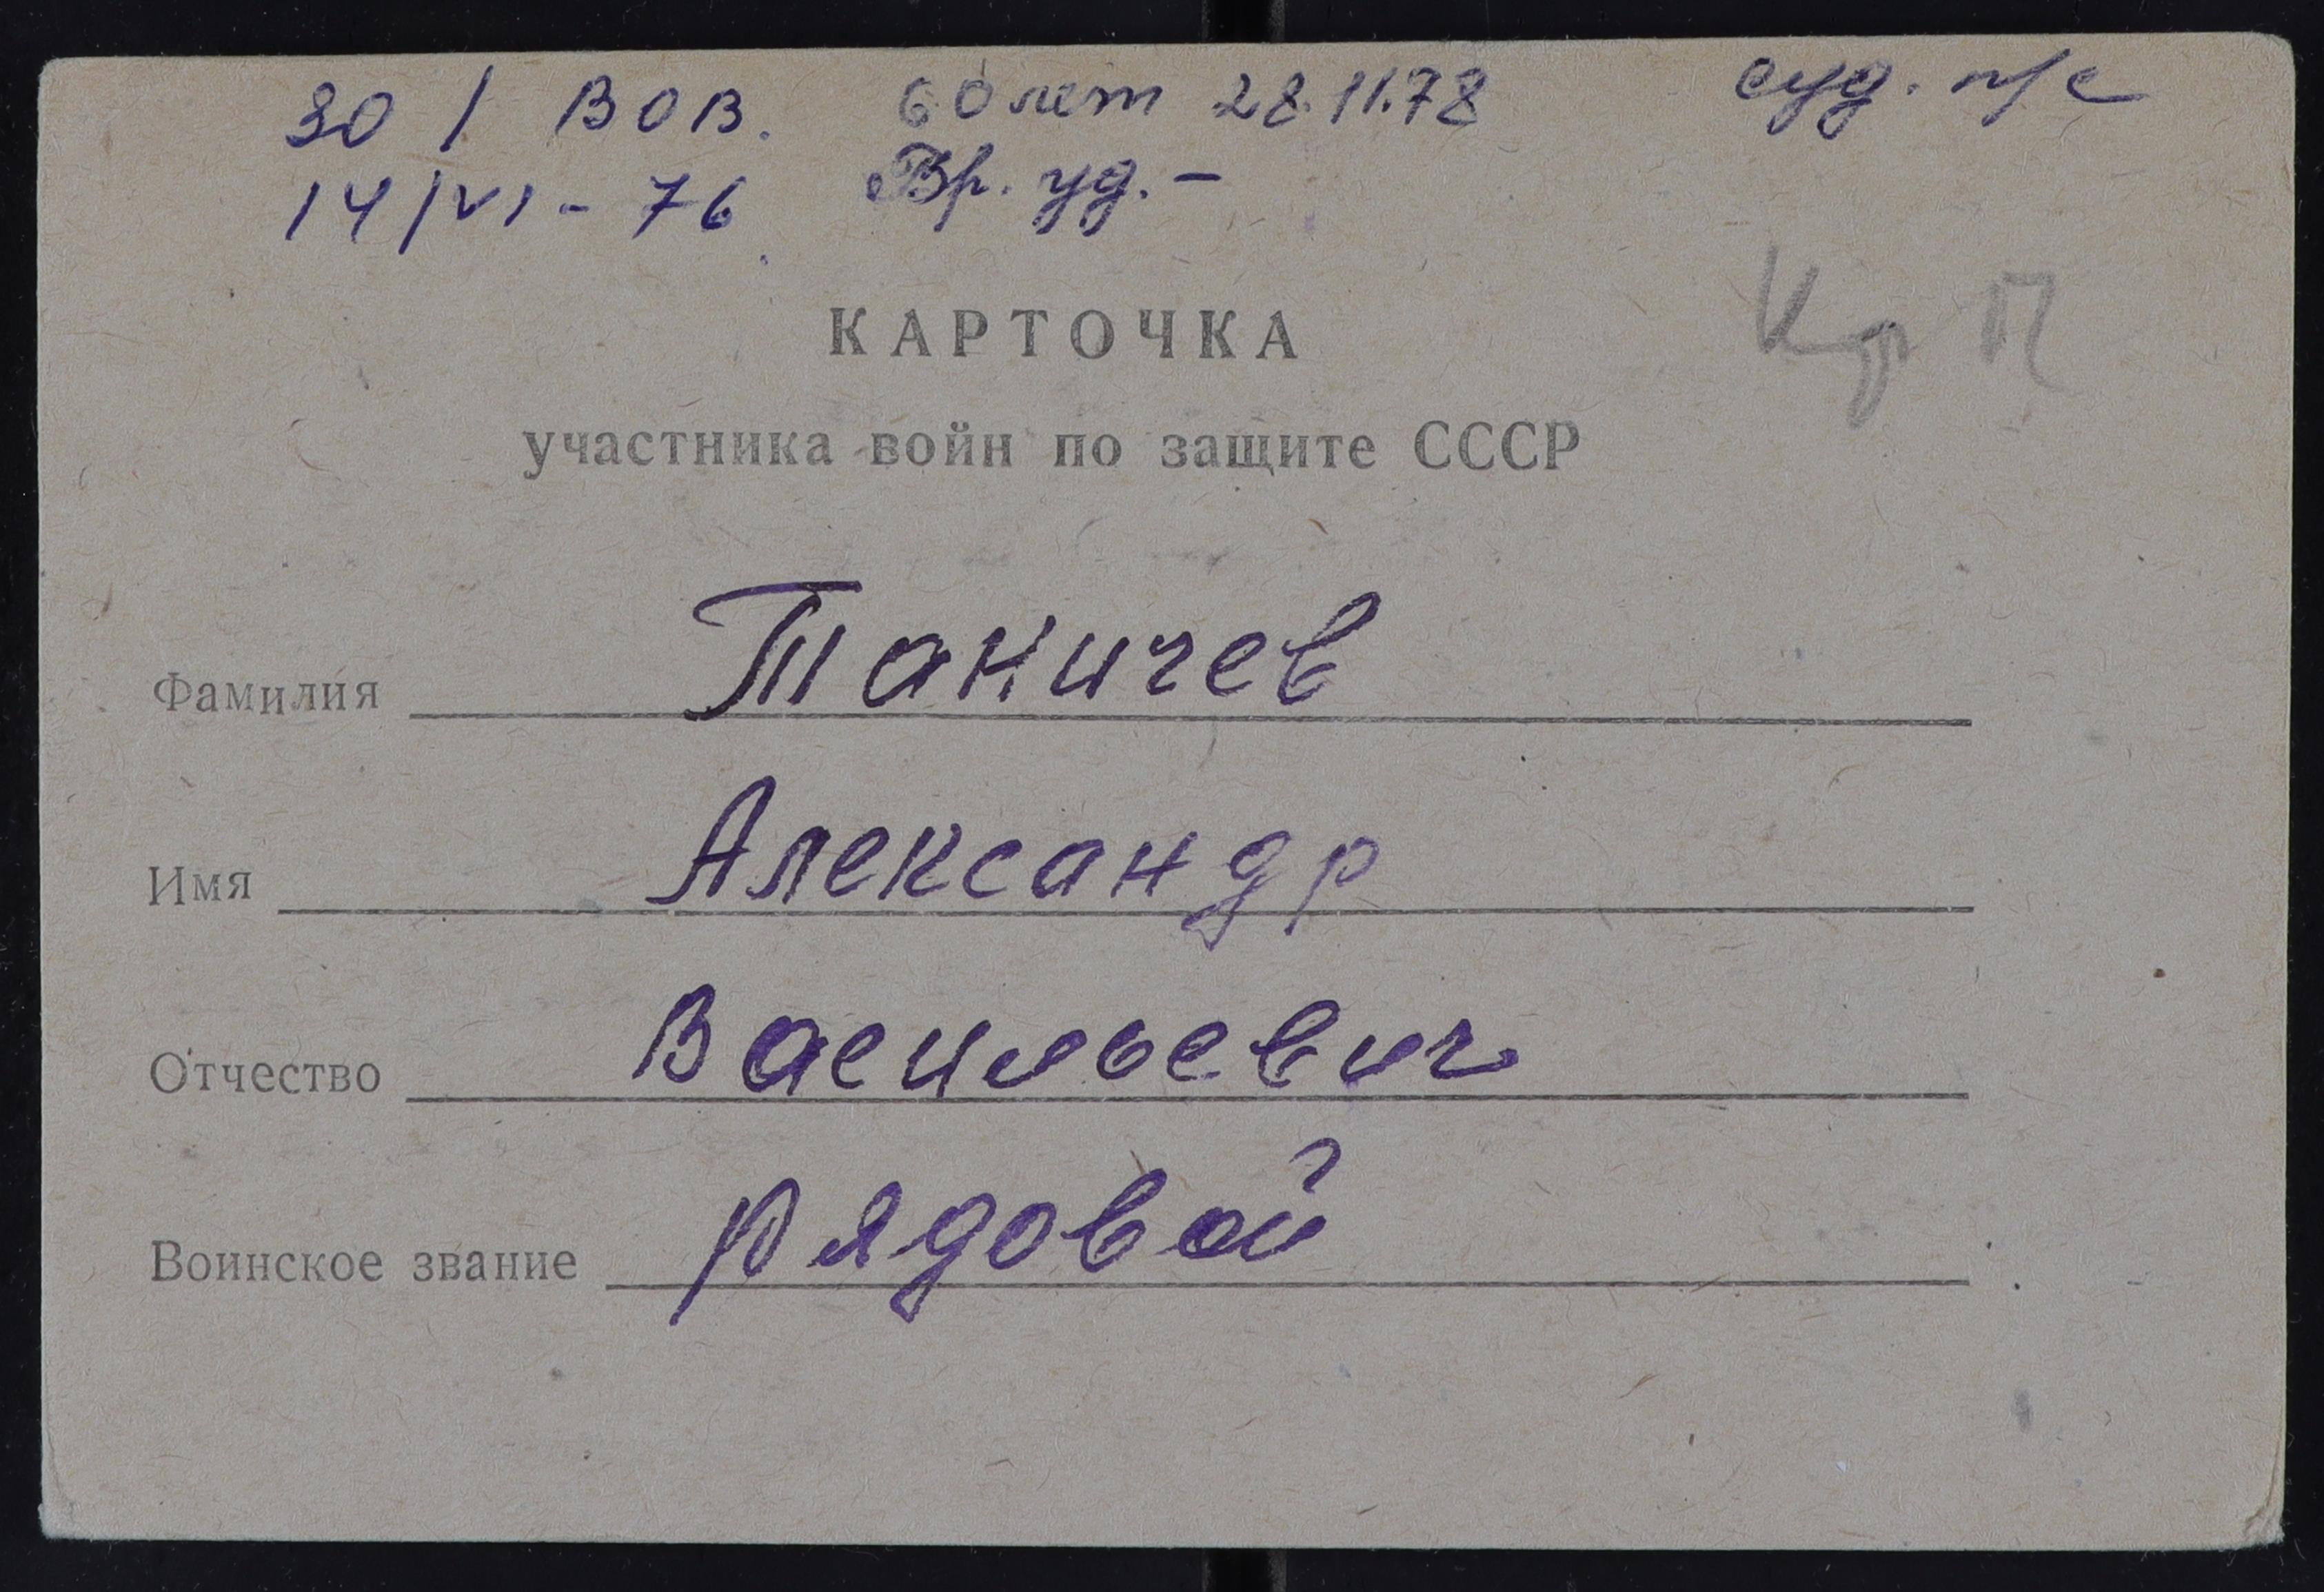 30 / ВОВ. 60 лет 28.11.78 суд. п/с
14/VI - 76 Вр. уд. -
Кр П
КАРТОЧКА
участника войн по защите СССР
Фамилия Таничев
Имя Александр
Отчество Васильевич
Воинское звание рядовой